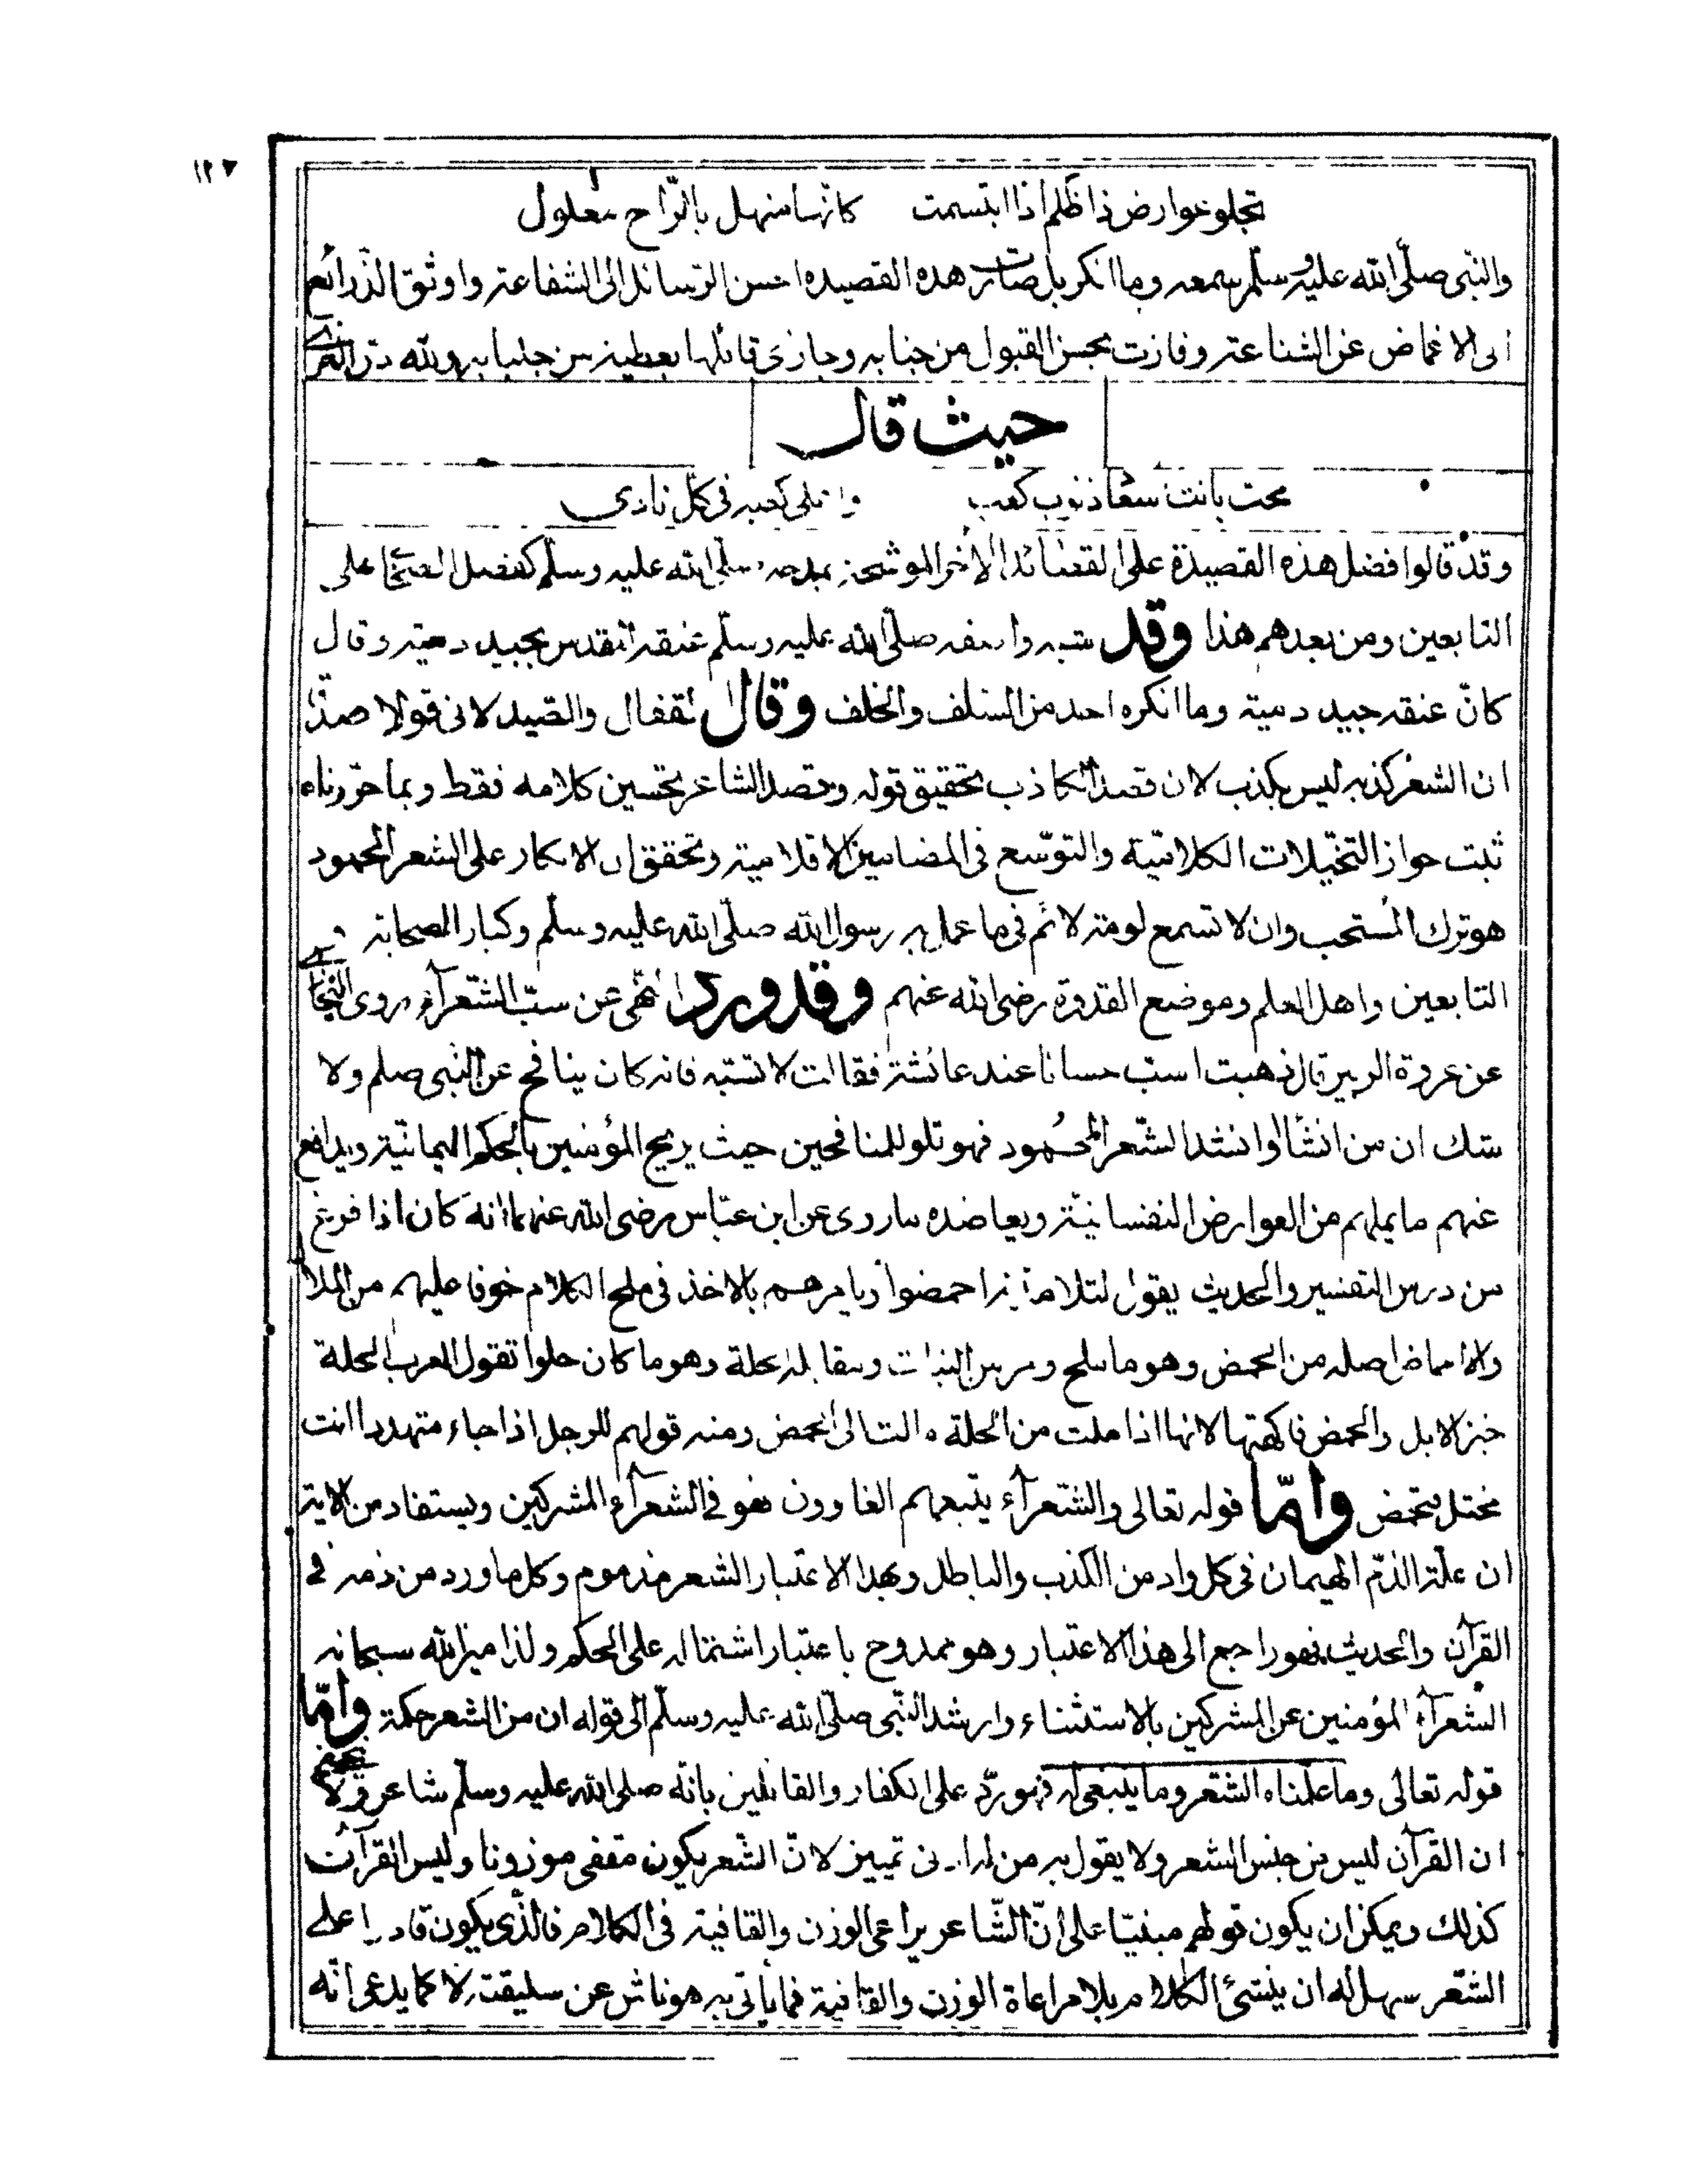 ١٢٧
تجلو عوارض ذا ظلم اذا ابتسمت كانها منهل بالرّاح معلول
والنبى صلّى الله عليه وسلّم يسمعه وما انكر بل صارت هذه القصيدة احسن الوسائل الى الشفاعة واوثق الذّرائع
الى الاغماض عن الشناعة وفازت بحسن القبول من جنابه وجازى قائلها بعطية من جلبابه ولله درّ العزى
حيث قال
محت بانت سعاد ذنوب كعب واعلى كعبه فى كلّ نادى
وقد قالوا فضل هذه القصيدة على القصائد الأخر الموشحة بمدحه صلّى الله عليه وسلّم كفضل الصحابة على
التابعين ومن بعدهم هذا وقد شبه واصفه صلّى الله عليه وسلّم عنقه المقدس بجيد دمية وقال
كانّ عنقه جيد دمية وما انكره احد من السلف والخلف وقال القفال والصّيدلانى قولا صدقا
ان الشعر كذبه ليس بكذب لان قصد الكاذب تحقيق قوله وقصد الشاعر تحسين كلامه فقط وبما حرّرناه
ثبت جواز التخيّلات الكلاميّة والتوسّع فى المضامين الاقلامية وتحقق ان الانكار على الشعر المحمود
هو ترك المستحب وان لا تسمع لومة لائم فى ما عمل به رسول الله صلّى الله عليه وسلم وكبار الصحابة و
التابعين واهل العلم وموضع القدوة رضى الله عنهم وقد ورد النّهى عن سبّ الشّعرآء روى البخارى
عن عروة الزبير قال ذهبت اسبّ حسانا عند عائشة فقالت لا تسبّه فانه كان ينافح عن النّبى صلعم ولا
شك ان من انشأ او انشد الشّعر المحمود فهو تلو للمنافحين حيث يريح المؤمنين بالحكم اليمانيّة ويدافع
عنهم ما يملهم من العوارض النفسانيّة ويعاضده ما روى عن ابن عبّاس رضى الله عنهما انه كان اذا فرغ
من درس التفسير والحديث يقول لتلامذته احمضوا ويامرهم بالاخذ فى ملح الكلام خوفا عليهم من الملال
والاحماض اصله من الحمض وهو ما ملح ومر من النبات ومقابله الحلة وهو ما كان حلوا تقول العرب الحلة
خبز الابل والحمض فاكهتها لانها اذا ملت من الحلة مالت الى الحمض ومنه قولهم للرجل اذا جاء متهددا انت
مختل فتحمض وامّا قوله تعالى والشّعرآء يتبعهم الغاوون فهو فى الشعرآء المشركين ويستفاد من الاية
ان علّة الذّم الهيمان فى كل واد من الكذب والباطل وبهذا الاعتبار الشعر مذموم وكل ما ورد من ذمه فى
القرآن والحديث فهو راجع الى هذا الاعتبار وهو ممدوح باعتبار اشتماله على الحكم ولذا ميز الله سبحانه
الشعرآء المؤمنين عن المشركين بالاستثناء وارشد النّبى صلّى الله عليه وسلّم الى قوله ان من الشعر حكمة وامّا
قوله تعالى وما علّمناه الشّعر وما ينبغى له فهو ردّ على الكفار والقائلين بانّه صلى الله عليه وسلّم شاعر ولا
ان القرآن ليس من جنس الشعر ولا يقول به من له ادنى تمييز لانّ الشّعر يكون مقفى موزونا وليس القرآن
كذلك ويمكن ان يكون قولهم مبنيّا على انّ الشّاعر يراعى الوزن والقافية فى الكلام فالّذى يكون قادرا على
الشّعر سهل له ان ينشئ الكلام بلا مراعاة الوزن والقافية فما يأتى به هو ناش عن سليقته لا كما يدعى انّه